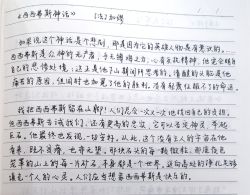 《西西弗斯神话》 〔法〕加缪
如果说这个神话是个悲剧，那是因为它的英雄人物是有意识的。
西西弗斯是众神的无产者，手无缚鸡之力，心有反抗精神，他完全明白
自己的悲惨处境：这正是他下山期间所思考的。清醒的头脑是他
痛苦的原因，但同时也加冕了他的胜利。没有轻蔑征服不了的命运。
我把西西弗斯留在山脚！人们总会一次又一次地找回自己的负担。
但西西弗斯告诫我们，还有更高的忠实，它可以否定神灵，举起
巨石。他最终也发现，一切安好。从此，这个没有主人的宇宙在他
看来，既不荒瘠，也非无望。那块石头的每一颗微粒，那座夜色
笼罩的山上的每一片矿石，本身都是一个世界。迈向高处的挣扎足够
填充一个人的心灵。人们应当想象西西弗斯是快乐的。